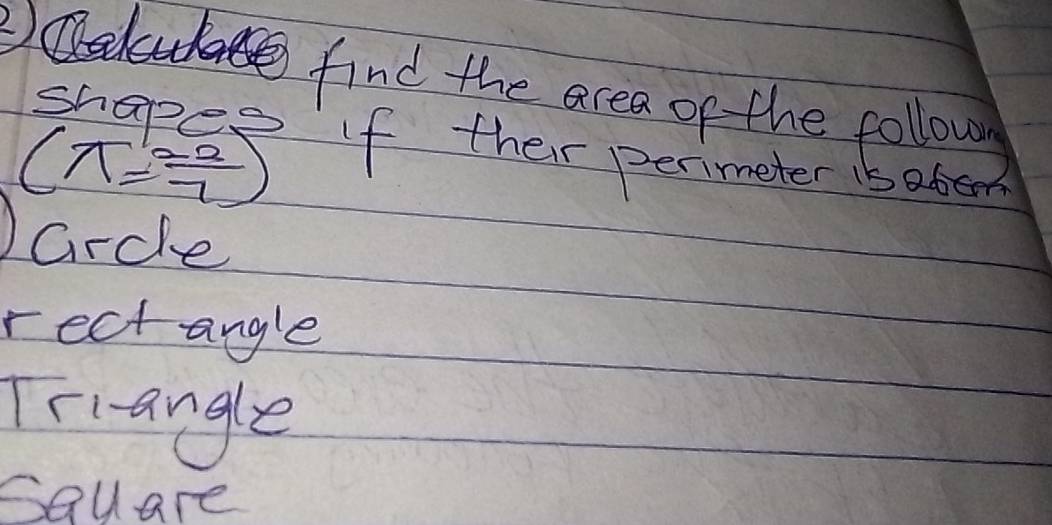 2) find the area of the following
shapes if their perimeter is 26cm
(π=22/7)
) Circle
rectangle
Triangle
Square